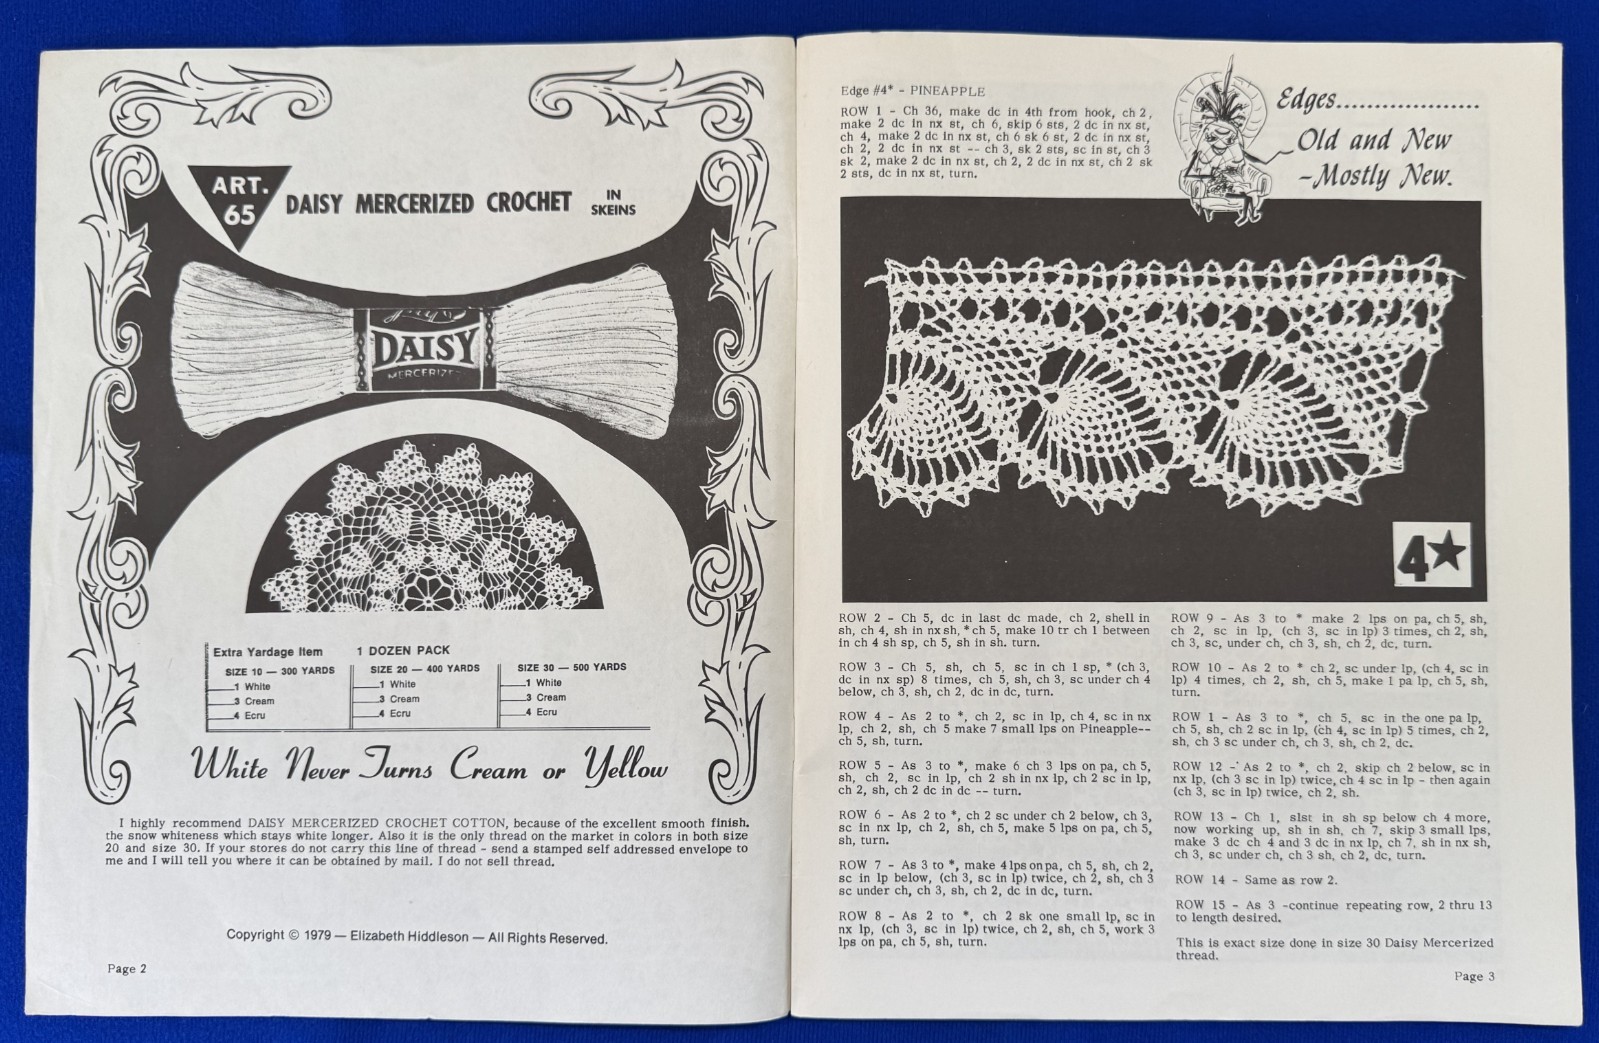 ART.
65
DAISY MERCERIZED CROCHET
IN
SKEINS
DAISY
MERCERIZE
Extra Yardage Item 1 DOZEN PACK
SIZE 10 — 300 YARDS
1 White
3 Cream
4 Ecru
SIZE 20 — 400 YARDS
1 White
3 Cream
4 Ecru
SIZE 30 — 500 YARDS
1 White
3 Cream
4 Ecru
White Never Turns Cream or Yellow
I highly recommend DAISY MERCERIZED CROCHET COTTON, because of the excellent smooth finish.
the snow whiteness which stays white longer. Also it is the only thread on the market in colors in both size
20 and size 30. If your stores do not carry this line of thread - send a stamped self addressed envelope to
me and I will tell you where it can be obtained by mail. I do not sell thread.
Copyright © 1979 — Elizabeth Hiddleson — All Rights Reserved.
Page 2
Edge #4* - PINEAPPLE
ROW 1 - Ch 36, make dc in 4th from hook, ch 2,
make 2 dc in nx st, ch 6, skip 6 sts, 2 dc in nx st,
ch 4, make 2 dc in nx st, ch 6 sk 6 st, 2 dc in nx st,
ch 2, 2 dc in nx st -- ch 3, sk 2 sts, sc in st, ch 3
sk 2, make 2 dc in nx st, ch 2, 2 dc in nx st, ch 2 sk
2 sts, dc in nx st, turn.
Edges...................
Old and New
-Mostly New.
4★
ROW 2 - Ch 5, dc in last dc made, ch 2, shell in
sh, ch 4, sh in nx sh, *ch 5, make 10 tr ch 1 between
in ch 4 sh sp, ch 5, sh in sh. turn.
ROW 3 - Ch 5, sh, ch 5, sc in ch 1 sp, * (ch 3,
dc in nx sp) 8 times, ch 5, sh, ch 3, sc under ch 4
below, ch 3, sh, ch 2, dc in dc, turn.
ROW 4 - As 2 to *, ch 2, sc in lp, ch 4, sc in nx
lp, ch 2, sh, ch 5 make 7 small lps on Pineapple--
ch 5, sh, turn.
ROW 5 - As 3 to *, make 6 ch 3 lps on pa, ch 5,
sh, ch 2, sc in lp, ch 2 sh in nx lp, ch 2 sc in lp,
ch 2, sh, ch 2 dc in dc -- turn.
ROW 6 - As 2 to *, ch 2 sc under ch 2 below, ch 3,
sc in nx lp, ch 2, sh, ch 5, make 5 lps on pa, ch 5,
sh, turn.
ROW 7 - As 3 to *, make 4 lps on pa, ch 5, sh, ch 2,
sc in lp below, (ch 3, sc in lp) twice, ch 2, sh, ch 3
sc under ch, ch 3, sh, ch 2, dc in dc, turn.
ROW 8 - As 2 to *, ch 2 sk one small lp, sc in
nx lp, (ch 3, sc in lp) twice, ch 2, sh, ch 5, work 3
lps on pa, ch 5, sh, turn.
ROW 9 - As 3 to * make 2 lps on pa, ch 5, sh,
ch 2, sc in lp, (ch 3, sc in lp) 3 times, ch 2, sh,
ch 3, sc, under ch, ch 3, sh, ch 2, dc, turn.
ROW 10 - As 2 to * ch 2, sc under lp, (ch 4, sc in
lp) 4 times, ch 2, sh, ch 5, make 1 pa lp, ch 5, sh,
turn.
ROW 1 - As 3 to *, ch 5, sc in the one pa lp,
ch 5, sh, ch 2 sc in lp, (ch 4, sc in lp) 5 times, ch 2,
sh, ch 3 sc under ch, ch 3, sh, ch 2, dc.
ROW 12 - As 2 to *, ch 2, skip ch 2 below, sc in
nx lp, (ch 3 sc in lp) twice, ch 4 sc in lp - then again
(ch 3, sc in lp) twice, ch 2, sh.
ROW 13 - Ch 1, slst in sh sp below ch 4 more,
now working up, sh in sh, ch 7, skip 3 small lps,
make 3 dc ch 4 and 3 dc in nx lp, ch 7, sh in nx sh,
ch 3, sc under ch, ch 3 sh, ch 2, dc, turn.
ROW 14 - Same as row 2.
ROW 15 - As 3 -continue repeating row, 2 thru 13
to length desired.
This is exact size done in size 30 Daisy Mercerized
thread.
Page 3